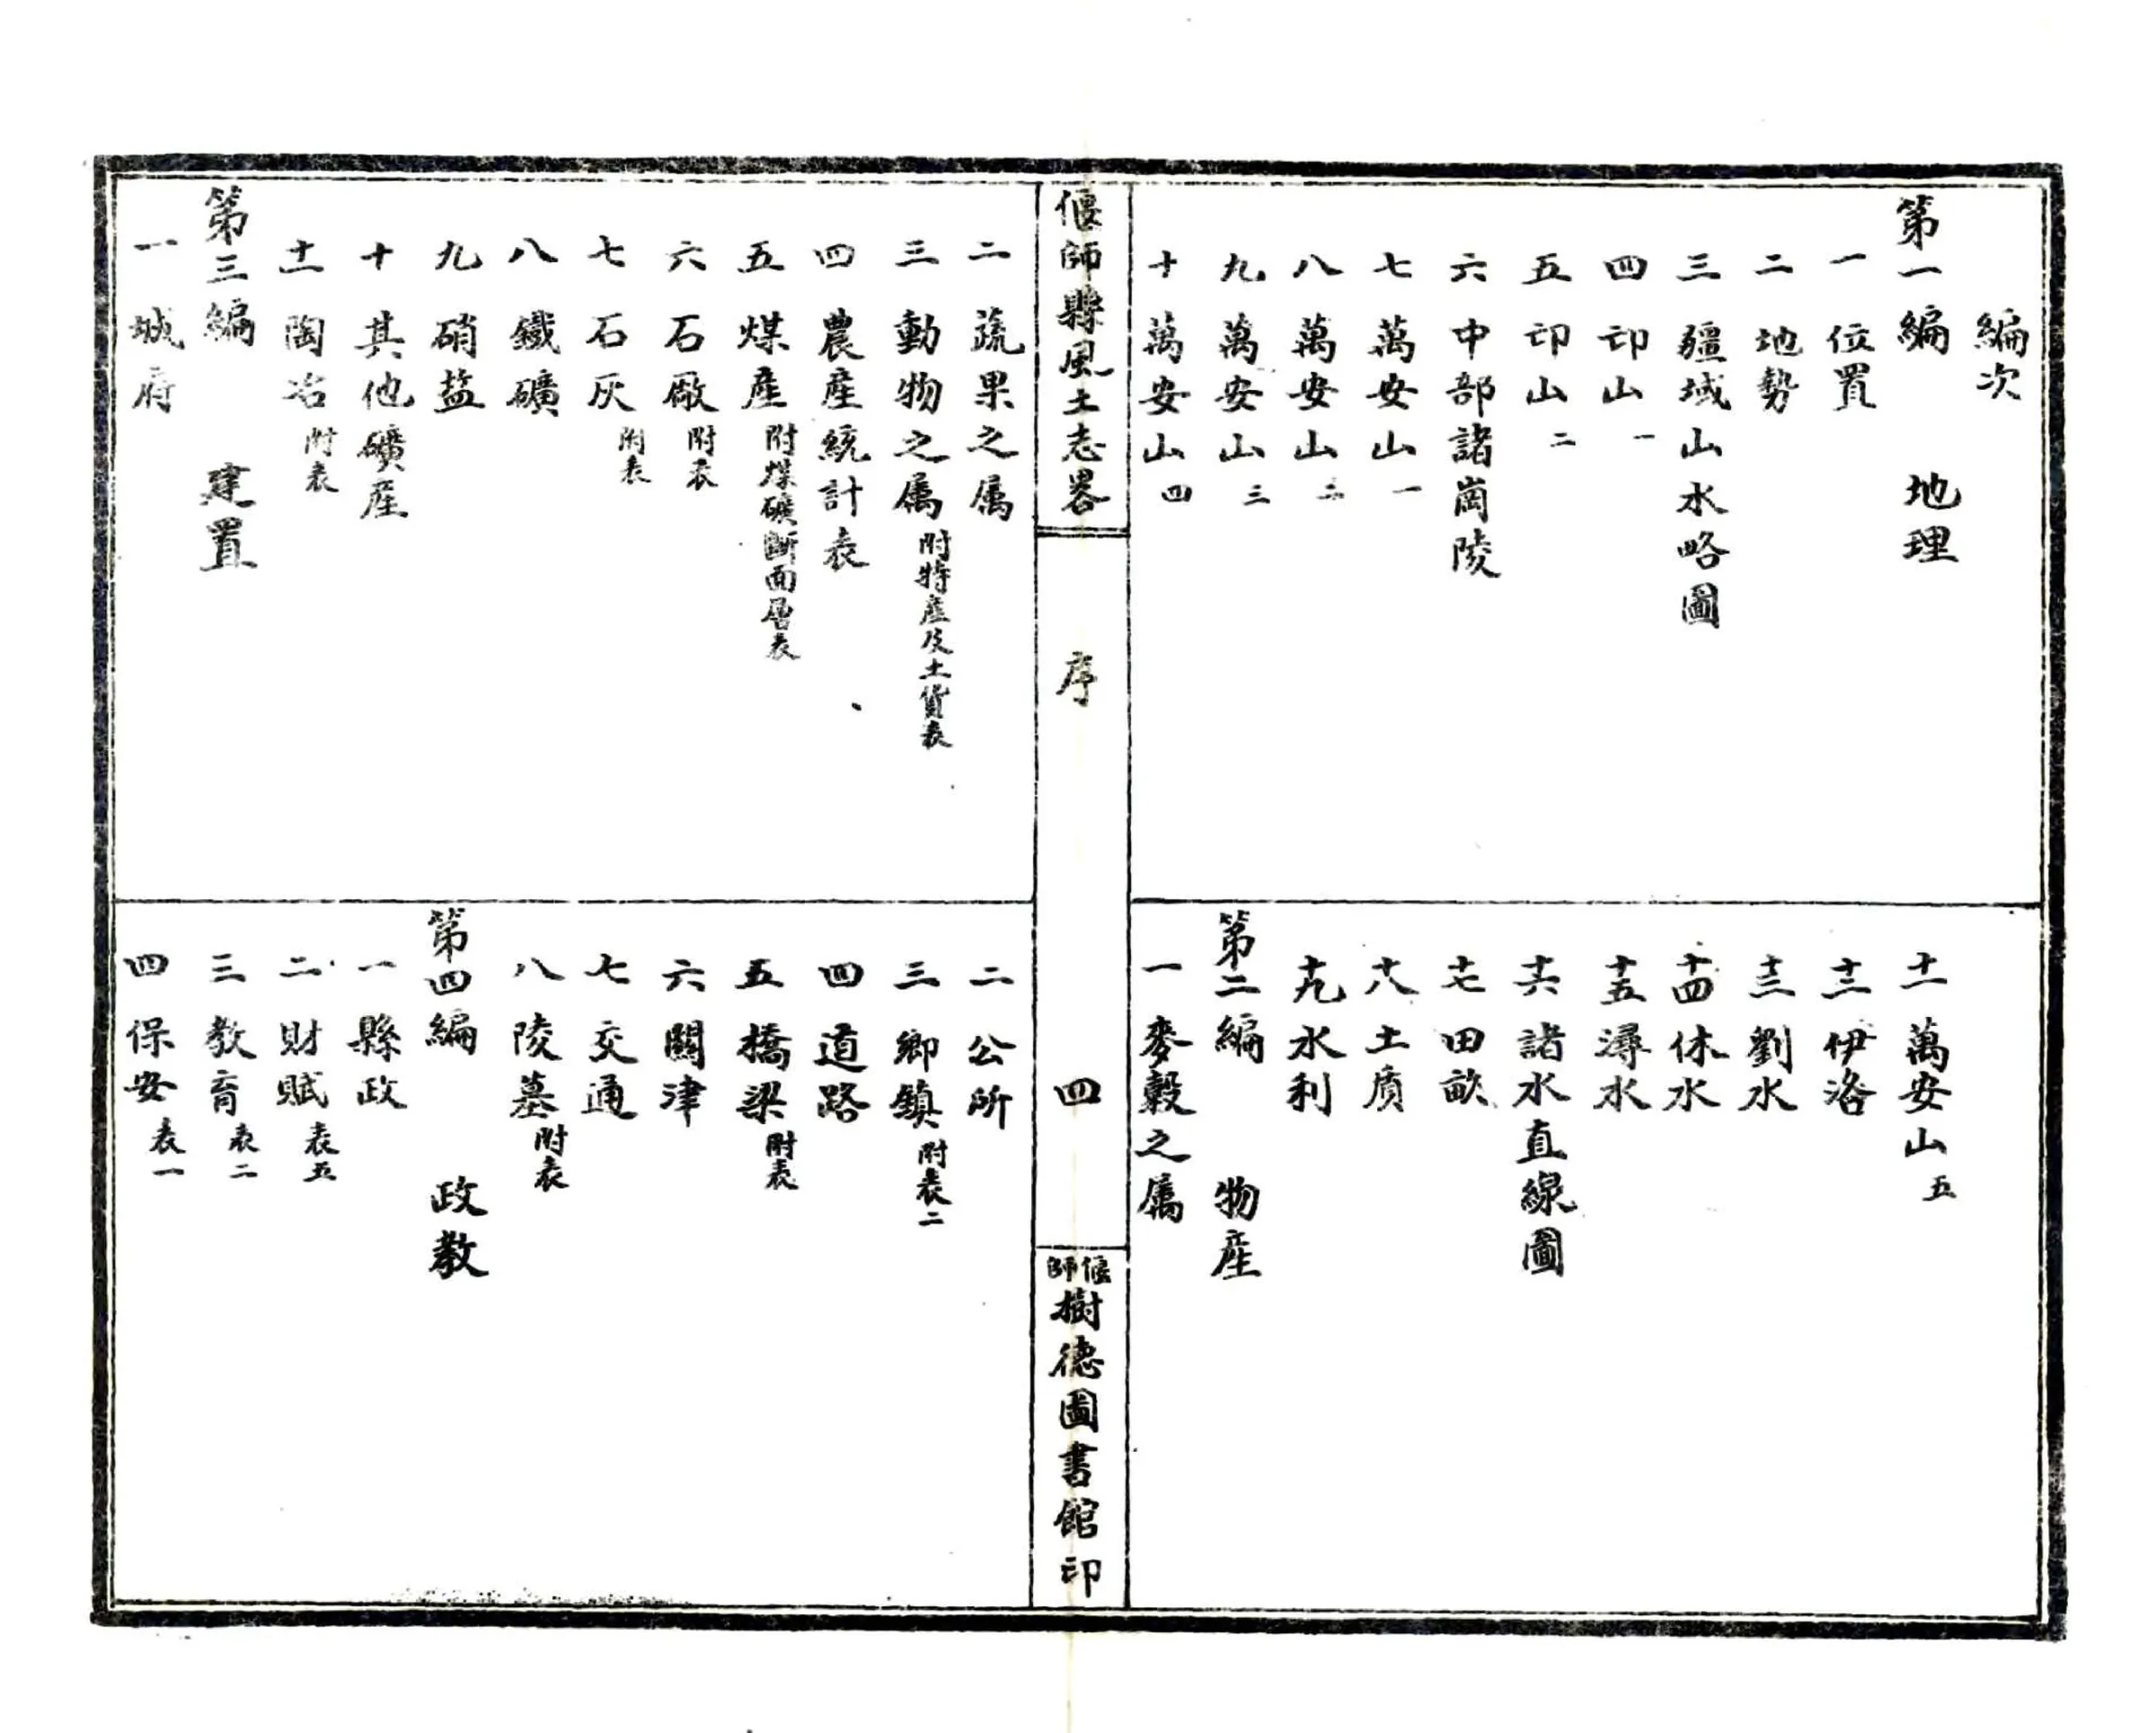 編次
第一編 地理
一 位置
二 地勢
三 疆域山水略圖
四 邙山 一
五 邙山 二
六 中部諸崗陵
七 萬安山 一
八 萬安山 二
九 萬安山 三
十 萬安山 四
十一 萬安山 五
十二 伊洛
十三 劉水
十四 休水
十五 潯水
十六 諸水直線圖
十七 田畝
十八 土质
十九 水利
第二編 物産
一 麥穀之属
偃師縣風土志畧
序
四
偃師樹德圖書館印
二 蔬果之属
三 動物之属 附特產及土貨表
四 農産統計表
五 煤産 附煤礦斷面層表
六 石廠 附表
七 石灰 附表
八 鐵礦
九 硝盐
十 其他礦産
十一 陶冶 附表
第三編 建置
一 城府
二 公所
三 鄉鎮 附表二
四 道路
五 橋梁 附表
六 關津
七 交通
八 陵墓 附表
第四編 政教
一 縣政
二 財賦 表五
三 教育 表二
四 保安 表一